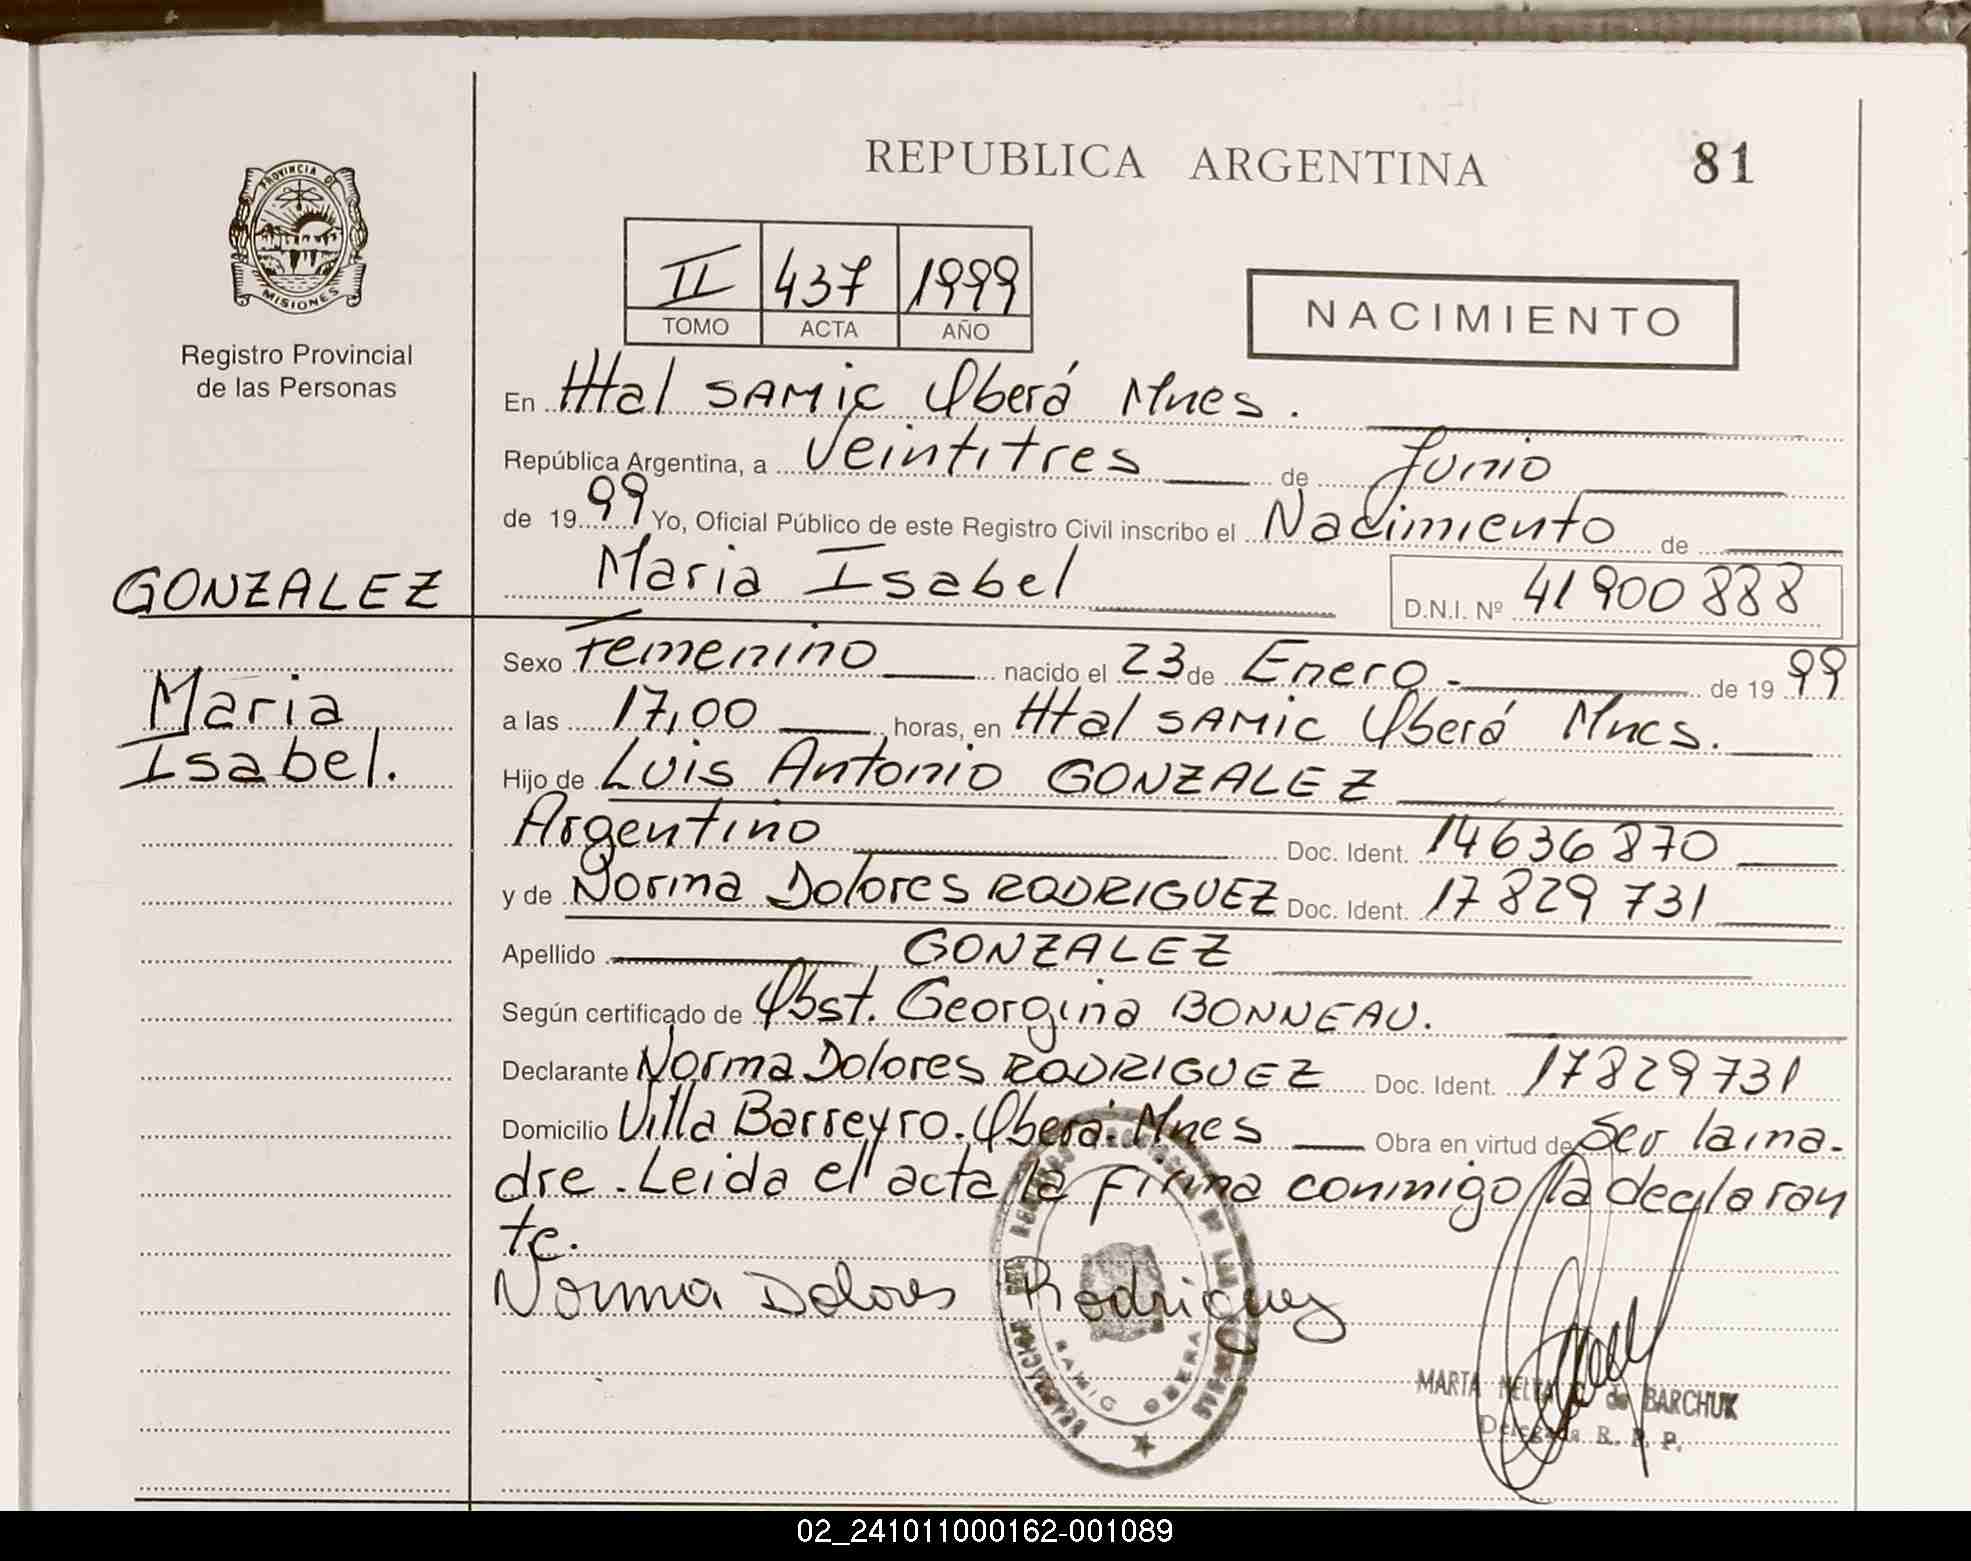 REPUBLICA ARGENTINA
81
PROVINCIA DE
MISIONES
Registro Provincial
de las Personas
II 437 1999
TOMO ACTA AÑO
NACIMIENTO
En Httal SAMIC Oberá Mnes.
República Argentina, a Veintitres de Junio
de 1999 Yo, Oficial Público de este Registro Civil inscribo el Nacimiento de
Maria Isabel D.N.I. Nº 41900888
GONZALEZ
Maria
Isabel.
Sexo Femenino nacido el 23 de Enero.- de 1999
a las 17,00 horas, en Httal SAMIC Oberá Mnes.
Hijo de Luis Antonio GONZALEZ
Argentino Doc. Ident. 14636870
y de Norma Dolores RODRIGUEZ Doc. Ident. 17829731
Apellido GONZALEZ
Según certificado de Obst. Georgina BONNEAU.
Declarante Norma Dolores RODRIGUEZ Doc. Ident. 17829731
Domicilio Villa Barreyro. Oberá. Mnes Obra en virtud de Ser la ma-
dre. Leida el acta la firma conmigo la declaran
te.
Norma Dolores Rodriguez
SAMIC OBERA
MARTA de BARCHUK
Delegada R. P. P.
02_241011000162-001089